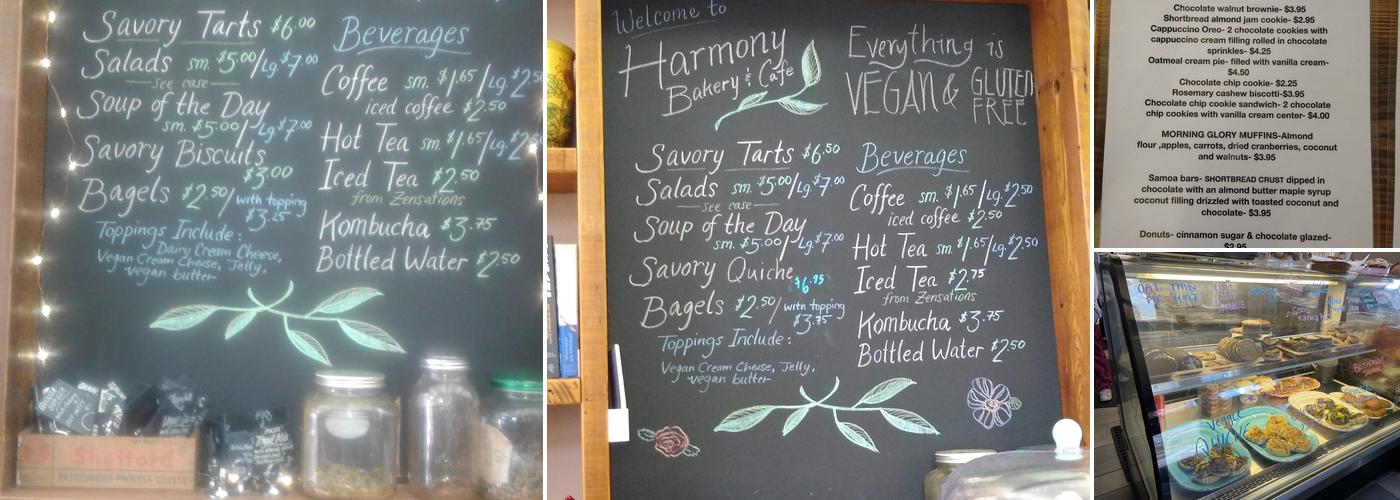 Savory Tarts $6.00
Salads sm. $5.00/Lg. $7.00
see case
Soup of the Day
sm. $5.00/Lg. $7.00
Savory Biscuits
$3.00
Bagels $2.50/with topping
$3.25
Toppings Include:
Dairy Cream Cheese,
Vegan Cream Cheese, Jelly,
vegan butter
Beverages
Coffee sm. $1.65/Lg. $2.5
iced coffee $2.50
Hot Tea sm. $1.65/Lg. $2.5
Iced Tea $2.50
from Zensations
Kombucha $3.75
Bottled Water $2.50
Shefford
PASTEURIZED PROCESS CHEESE
Welcome to
Harmony
Bakery & Cafe
Everything is
VEGAN & GLUTEN
FREE
Savory Tarts $6.50
Salads sm. $5.00/Lg. $7.00
see case
Soup of the Day
sm. $5.00/Lg. $7.00
Savory Quiche
$6.95
Bagels $2.50/with topping
$3.75
Toppings Include:
Vegan Cream Cheese, Jelly,
vegan butter
Beverages
Coffee sm. $1.65/Lg. $2.50
iced coffee $2.50
Hot Tea sm. $1.65/Lg. $2.50
Iced Tea $2.75
from Zensations
Kombucha $3.75
Bottled Water $2.50
Chocolate walnut brownie- $3.95
Shortbread almond jam cookie- $2.95
Cappuccino Oreo- 2 chocolate cookies with
cappuccino cream filling rolled in chocolate
sprinkles- $4.25
Oatmeal cream pie- filled with vanilla cream-
$4.50
Chocolate chip cookie- $2.25
Rosemary cashew biscotti-$3.95
Chocolate chip cookie sandwich- 2 chocolate
chip cookies with vanilla cream center- $4.00
MORNING GLORY MUFFINS-Almond
flour ,apples, carrots, dried cranberries, coconut
and walnuts- $3.95
Samoa bars- SHORTBREAD CRUST dipped in
chocolate with an almond butter maple syrup
coconut filling drizzled with toasted coconut and
chocolate- $3.95
Donuts- cinnamon sugar & chocolate glazed-
$2.95
OAT THIN
MINT
Veggie
QUICHE